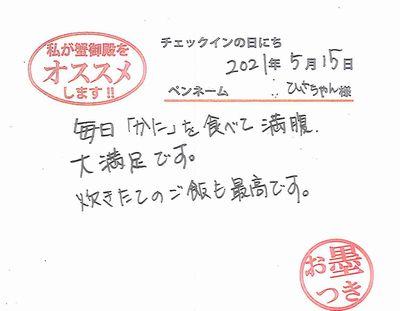 私が蟹御殿を
オススメ
します!!
チェックインの日にち
2021年5月15日
ペンネーム ひさちゃん様
毎日「かに」を食べて満腹.
大満足です。
炊きたてのご飯も最高です。
お墨
つき